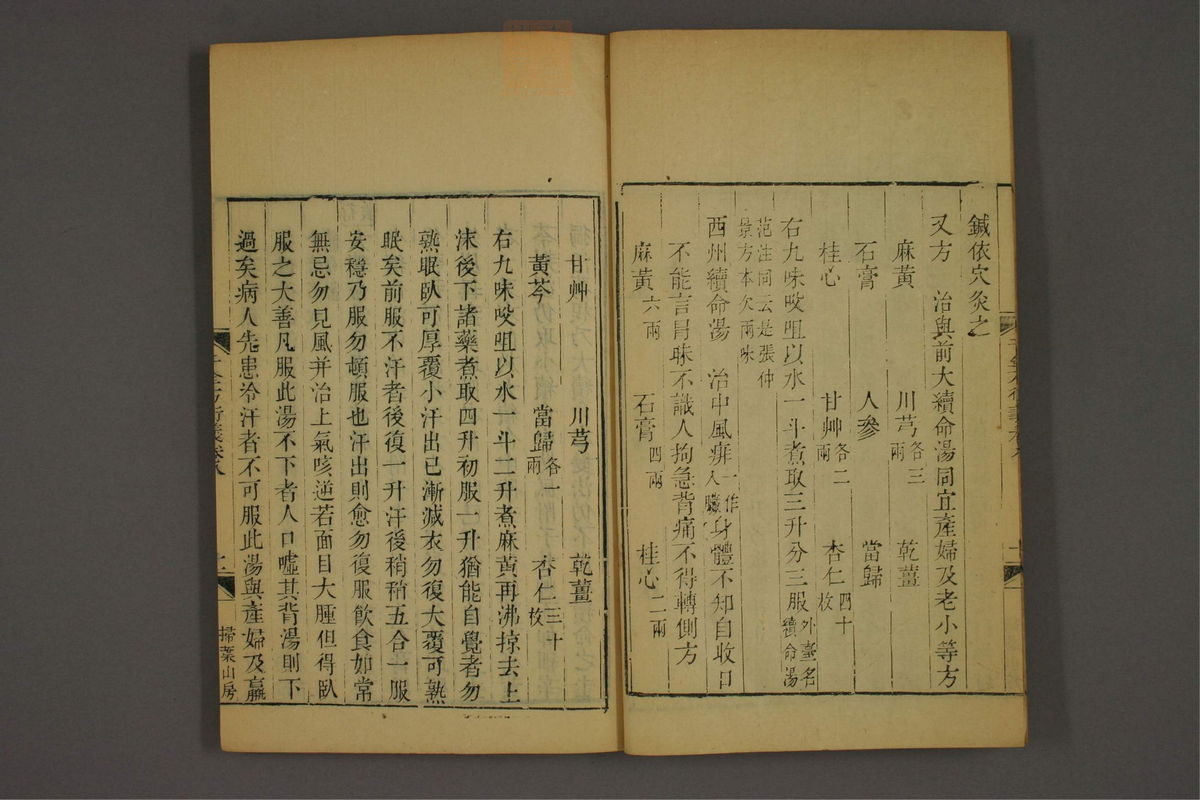 鍼依穴灸之
又方　治與前大續命湯同宜產婦及老小等方
麻黃　川芎各三兩　乾薑
石膏　人參　當歸
桂心　甘艸各二兩　杏仁四十枚
右九味㕮咀以水一斗煮取三升分三服外臺名續命湯
范汪同云是張仲景方本欠兩味
西州續命湯　治中風痱一作入臟身體不知自收口
不能言冒昧不識人拘急背痛不得轉側方
麻黃六兩　石膏四兩　桂心二兩
甘艸　川芎　乾薑
黃芩　當歸各一兩　杏仁三十枚
右九味㕮咀以水一斗二升煮麻黃再沸掠去上
沫後下諸藥煮取四升初服一升猶能自覺者勿
熟眠臥可厚覆小汗出已漸減衣勿復大覆可熟
眠矣前服不汗者後復一升汗後稍稍五合一服
安穩乃服勿頓服也汗出則愈勿復服飲食如常
無忌勿見風并治上氣咳逆若面目大腫但得臥
服之大善凡服此湯不下者人口噓其背湯則下
過矣病人先患冷汗者不可服此湯與產婦及羸
掃葉山房